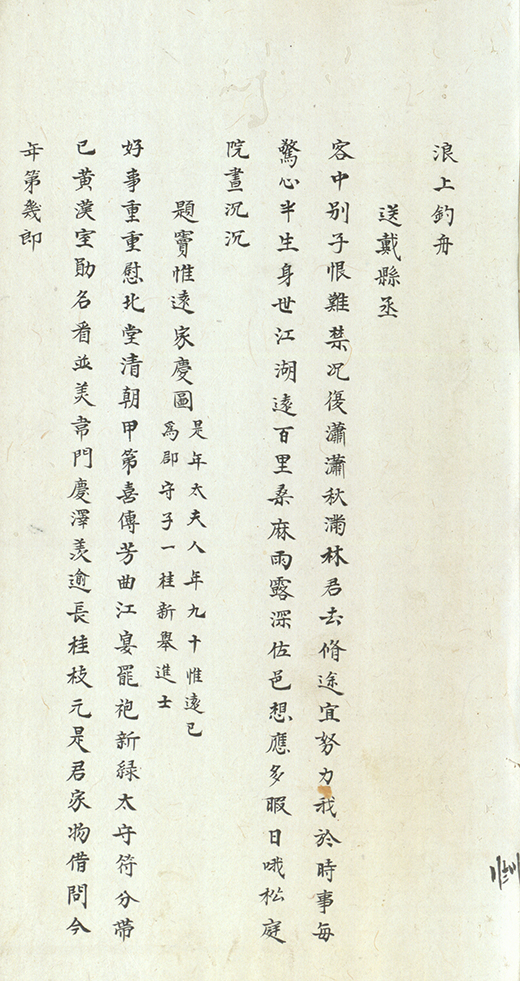 浪上釣舟
送戴縣丞
客中別子恨難禁况復瀟瀟秋滿林君去脩途宜努力我於時事每
驚心半生身世江湖遠百里桑麻雨露深佐邑想應多暇日哦松庭
院晝沉沉
題竇惟遠家慶圖
是年太夫人年九十惟遠已
爲郡守子一桂新舉進士
好事重重慰北堂清朝甲第喜傳芳曲江宴罷袍新緑太守符分帶
已黃漢室勛名看並美韋門慶澤羡逾長桂枝元是君家物借問今
年第幾郎